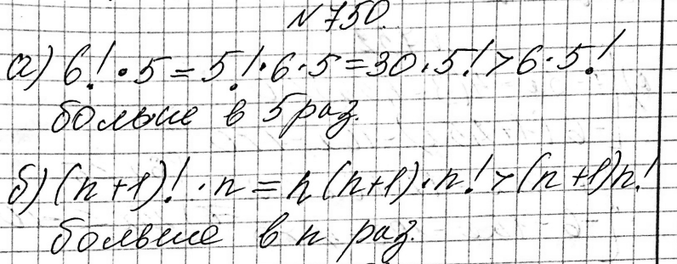 N 750.
а) 6! · 5 = 5! · 6 · 5 = 30 · 5! > 6 · 5!
больше в 5 раз.
б) (n+1)! · n = n (n+1) · n! > (n+1)n!
больше в n раз.